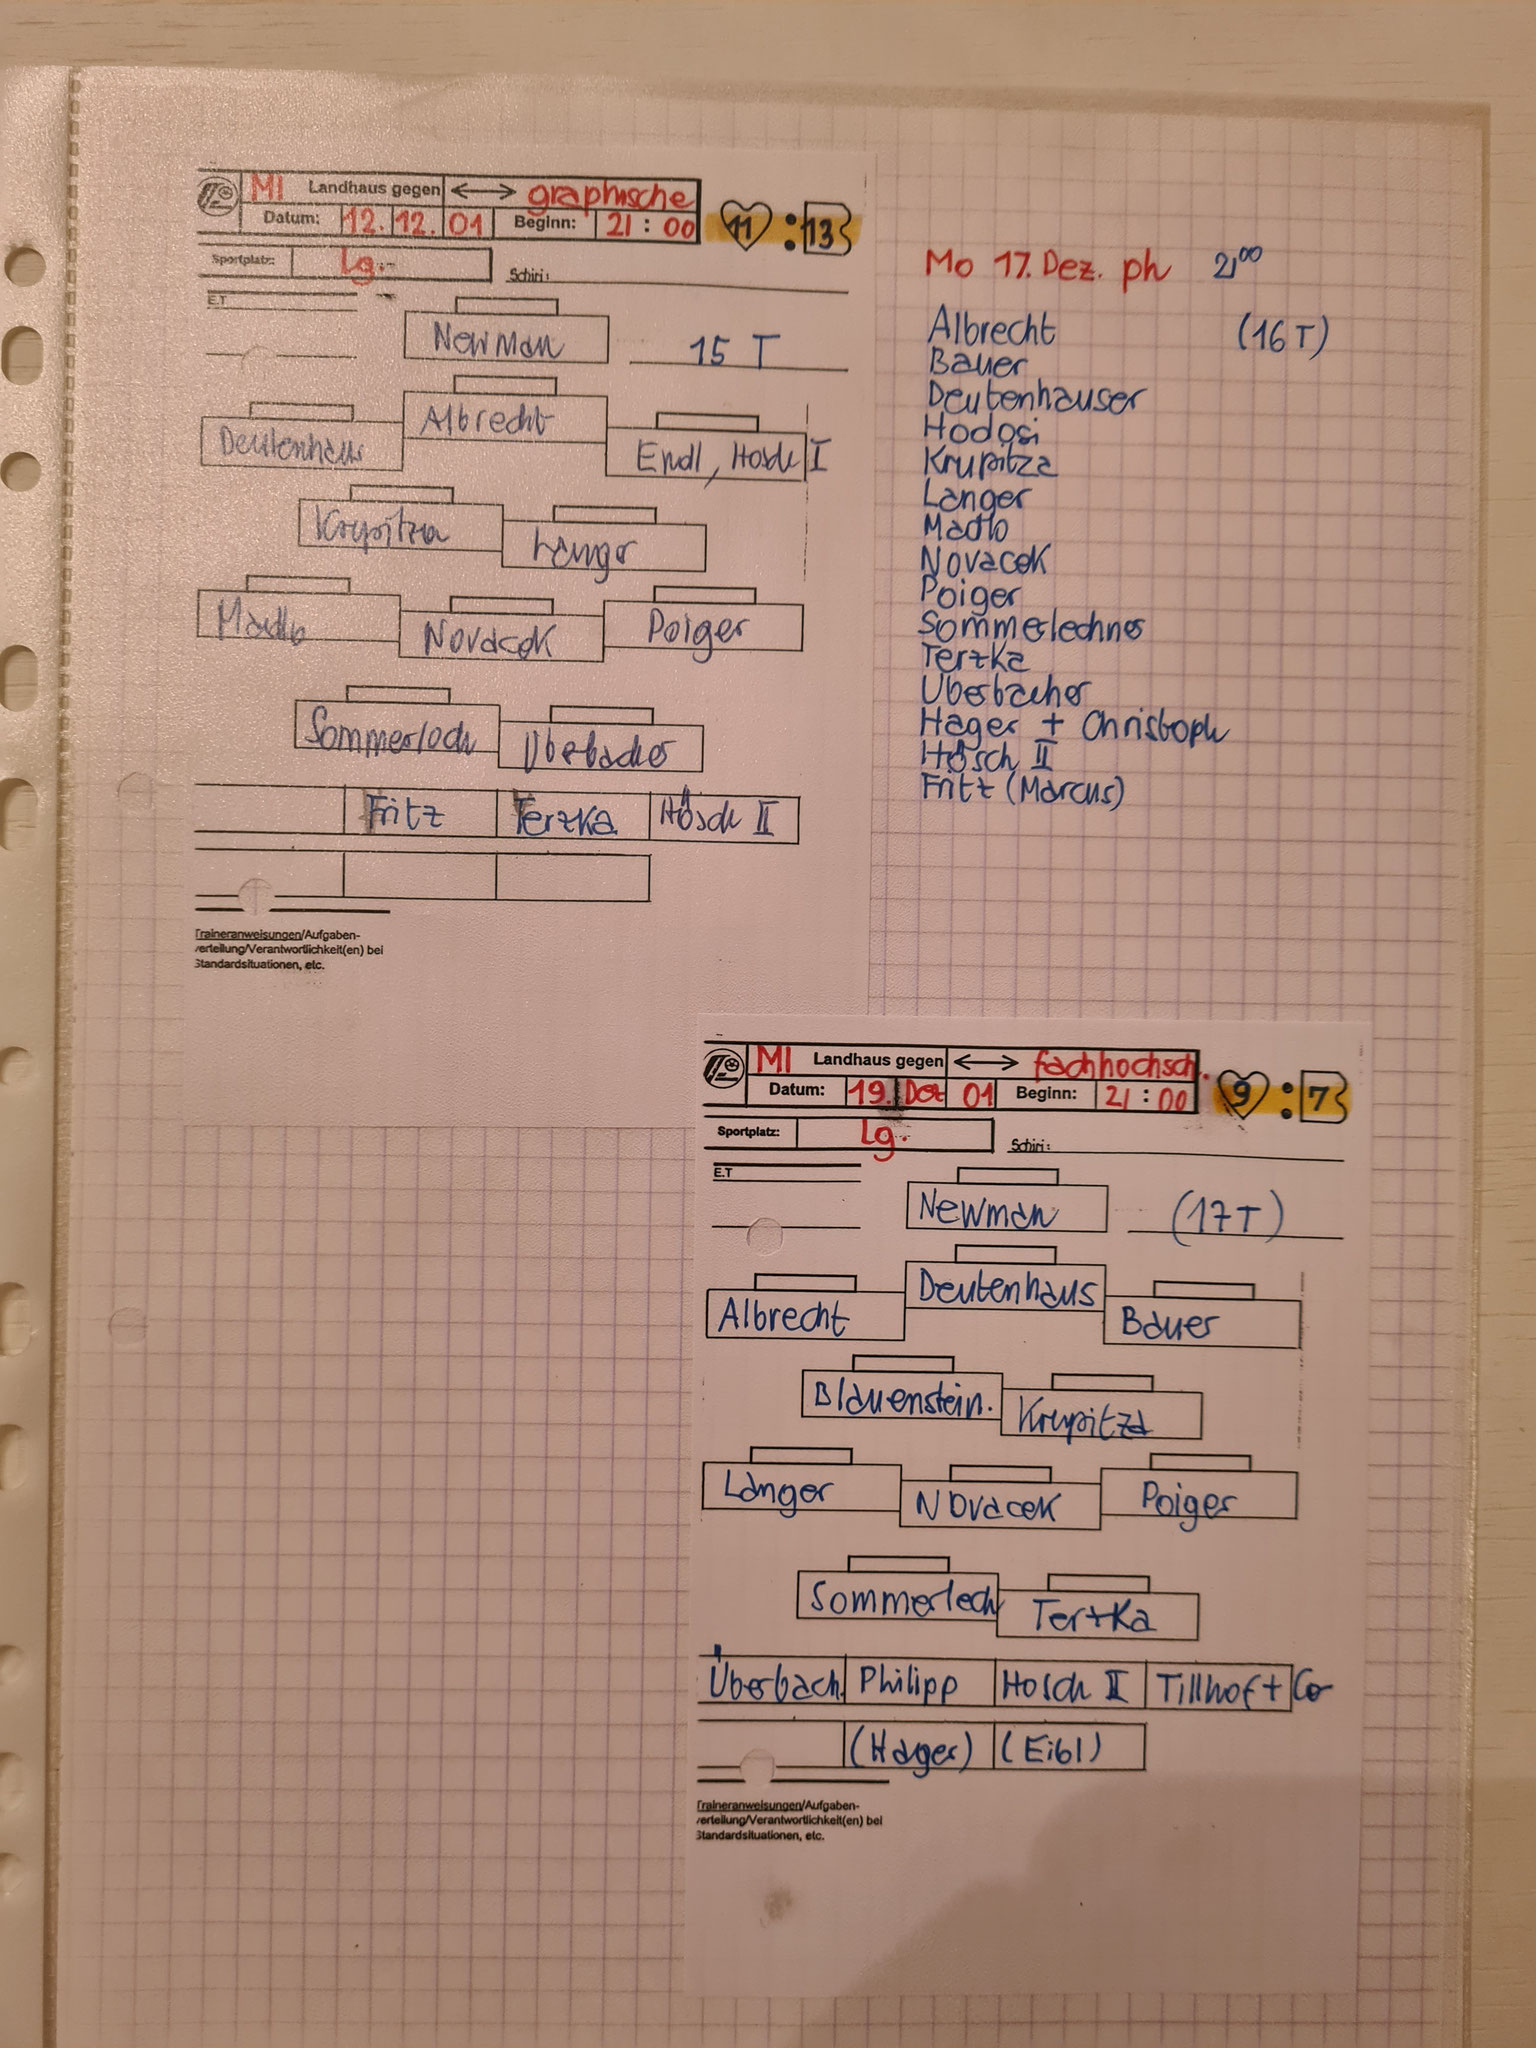 MI Landhaus gegen ⟷ graphische
Datum: 12. 12. 01 Beginn: 21 : 00 11 : 13
Sportplatz: Lg.
Schiri:
E.T
Newman 15 T
Albrecht
Deutenhaus Endl, Hösch I
Krupitza Langer
Madlo Novacek Poiger
Sommerlech Überbacher
Fritz Terzka Hösch II
Traineranweisungen/Aufgaben-
verteilung/Verantwortlichkeit(en) bei
Standardsituationen, etc.
Mo 17. Dez. ph 21 00
Albrecht (16 T)
Bauer
Deutenhauser
Hodosi
Krupitza
Langer
Madlo
Novacek
Poiger
Sommerlechner
Terzka
Überbacher
Hager + Christoph
Hösch II
Fritz (Marcus)
MI Landhaus gegen ⟷ fachhochsch.
Datum: 19. Dez 01 Beginn: 21 : 00 9 : 7
Sportplatz: Lg.
Schiri:
E.T
Newman (17 T)
Deutenhaus
Albrecht Bauer
Blauenstein. Krupitza
Langer Novacek Poiger
Sommerlech Terzka
Überbach. Philipp Hösch II Tillhof + Co
(Hager) (Eibl)
Traineranweisungen/Aufgaben-
verteilung/Verantwortlichkeit(en) bei
Standardsituationen, etc.